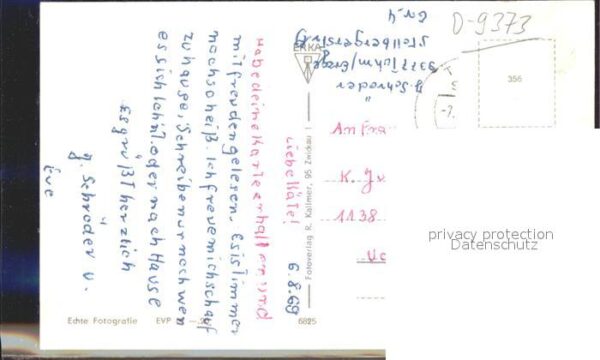 D-9373
Gr-4
Stollbergerstr. 9
9377 Thum/Erzge
J. Schröder
356
An Frau
K. Ju
1138
privacy protection
Datenschutz
ERKA
Fotoverlag R. Kallmer, 95 Zwickau 1
6.8.69
Liebe Käte!
Habe deine Karte erhalten und
mit freuden gelesen. Es ist immer
noch so heiß. Ich freue mich schauf
zu hause. Schreibe nur noch wen
es sich lohnt. oder nach Hause
Es grüßt herzlich
J. Schröder u.
Eve
Echte Fotografie EVP
6825